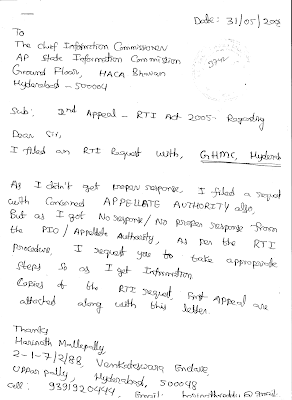 Date: 31/05/200
To
The Chief Information Commissioner
AP State Information Commission
Ground Floor, HACA Bhavan
Hyderabad - 500004
Sub: 2nd Appeal - RTI Act 2005- Regarding
Dear Sir,
I filed an RTI Request with, GHMC, Hyderab
As I didn't got proper response, I filed a request
with Concerned APPELLATE AUTHORITY also,
But as I got No response/No proper response from
the PIO/Appellate Authority, as per the RTI
procedure, I request you to take appropriate
steps so as I get Information.
Copies of the RTI request, First Appeal are
attached along with this letter.
Thanks
Harinath Mallepally,
2-1-7/2/88, Venkateswara Enclave,
Uppar pally, Hyderabad, 500048
Cell: 9391920444, Email: harinathreddy@gmail